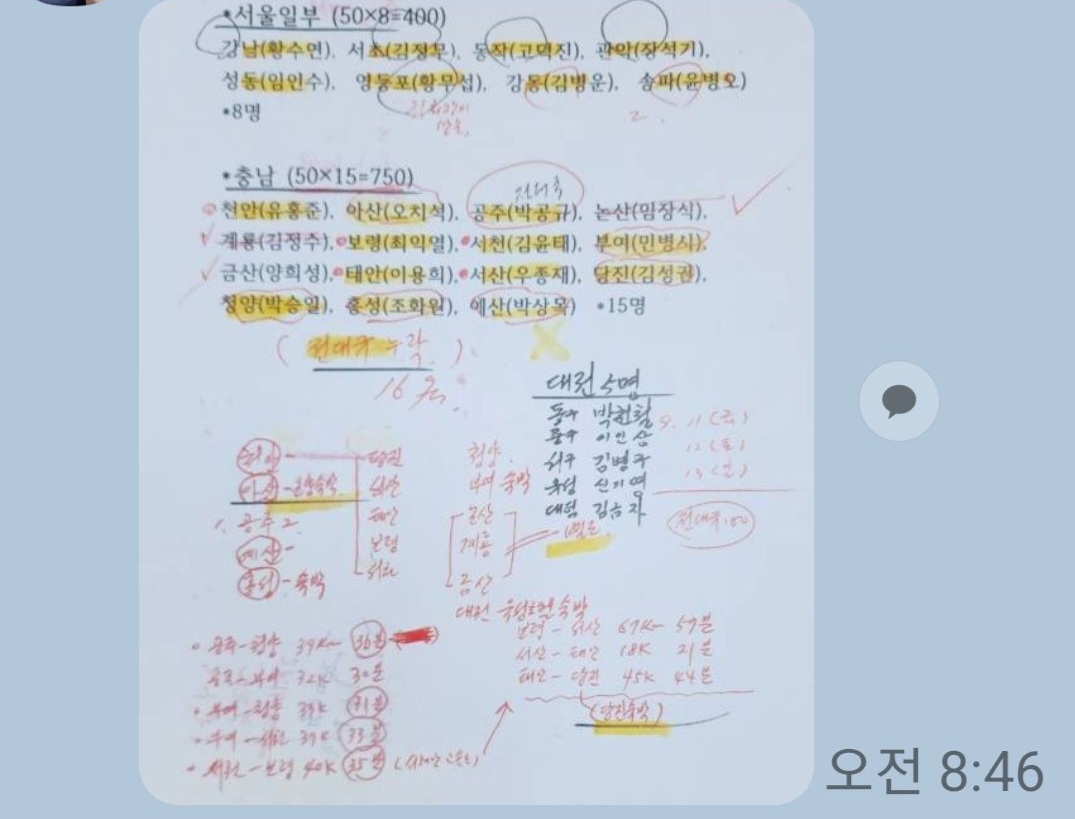 *서울일부 (50×8=400)
강남(황수연), 서초(김정무), 동작(고덕진), 관악(장석기),
성동(임인수), 영등포(황무섭), 강동(김병운), 송파(윤병오)
*8명
2.
*충남 (50×15=750)
천안(유홍준), 아산(오치석), 공주(박공규), 논산(임장식),
계룡(김정수), 보령(최익열), 서천(김윤태), 부여(민병시),
금산(양희성), 태안(이용희), 서산(우종재), 당진(김성권),
청양(박승일), 홍성(조화원), 예산(박상목) *15명
대전 5명
동구 박헌철
중구 이인상
서구 김병구
유성 신기영
대덕 김금자
9. 11 (금)
12 (토)
13 (일)
당진
서산
태안
보령
서천
청양
부여 숙박
논산
계룡
금산
공주 2
예산
홍성 - 숙박
공주 - 청양 39K 36분
공주 - 부여 32K 30분
부여 - 청양 31분
부여 - 서천 39K 33분
서천 - 보령 40K 35분
보령 - 서산 67K 57분
서산 - 태안 18K 21분
태안 - 당진 45K 44분
(당진숙박)
오전 8:46